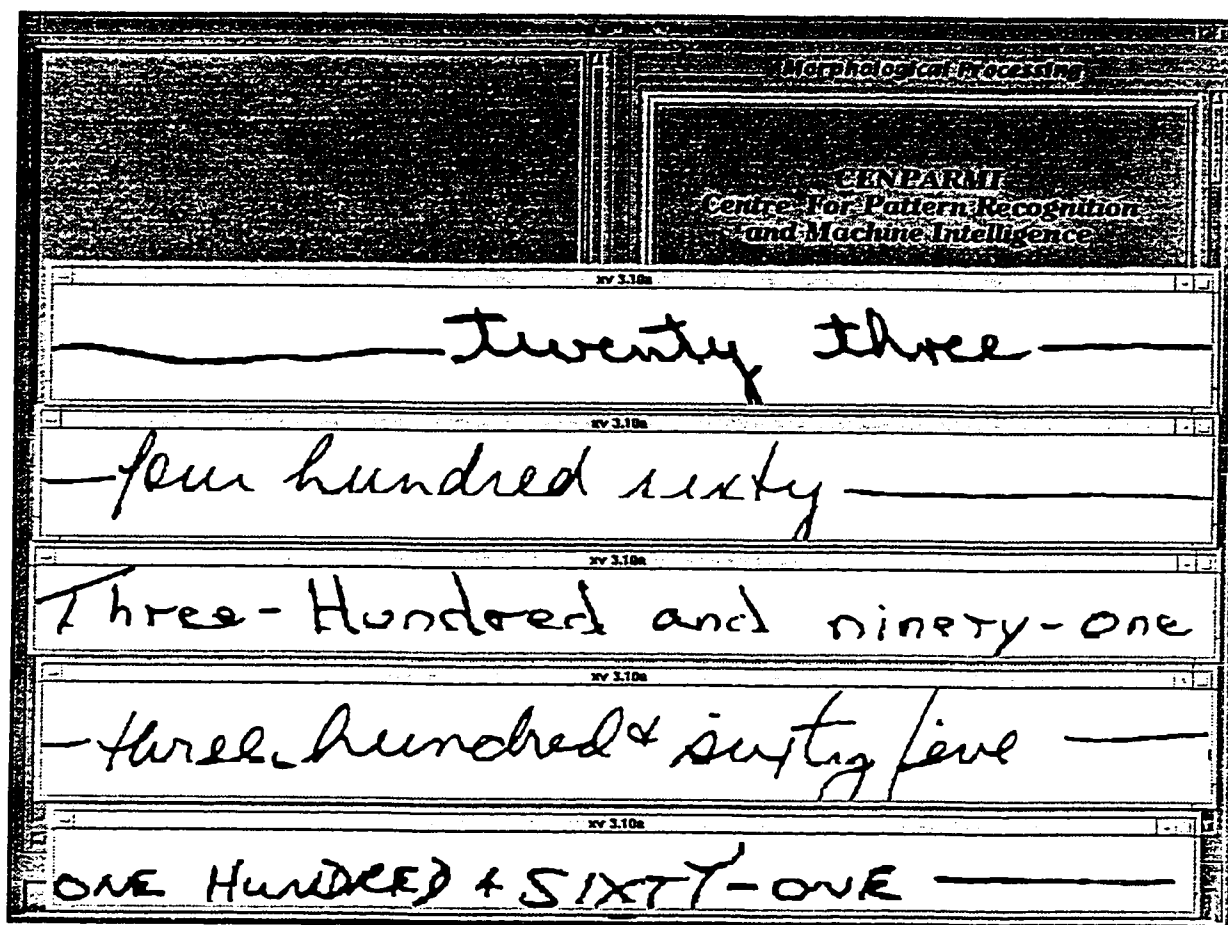 Morphological Processing
CENPARMI
Centre For Pattern Recognition
and Machine Intelligence
xv 3.10a
twenty three
xv 3.10a
four hundred sixty
xv 3.10a
Three-Hundred and ninety-one
xv 3.10a
three hundred & sixty five
xv 3.10a
ONE HUNDRED & SIXTY-ONE